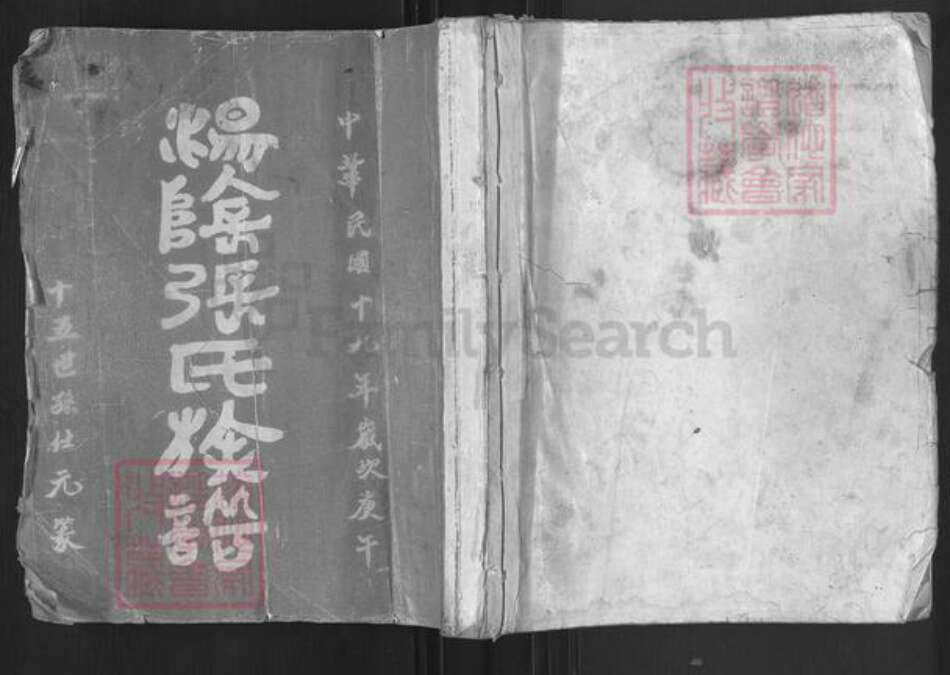 中華民國十九年歲次庚午
湯陰張氏族譜
十五世孫元篆
FamilySearch